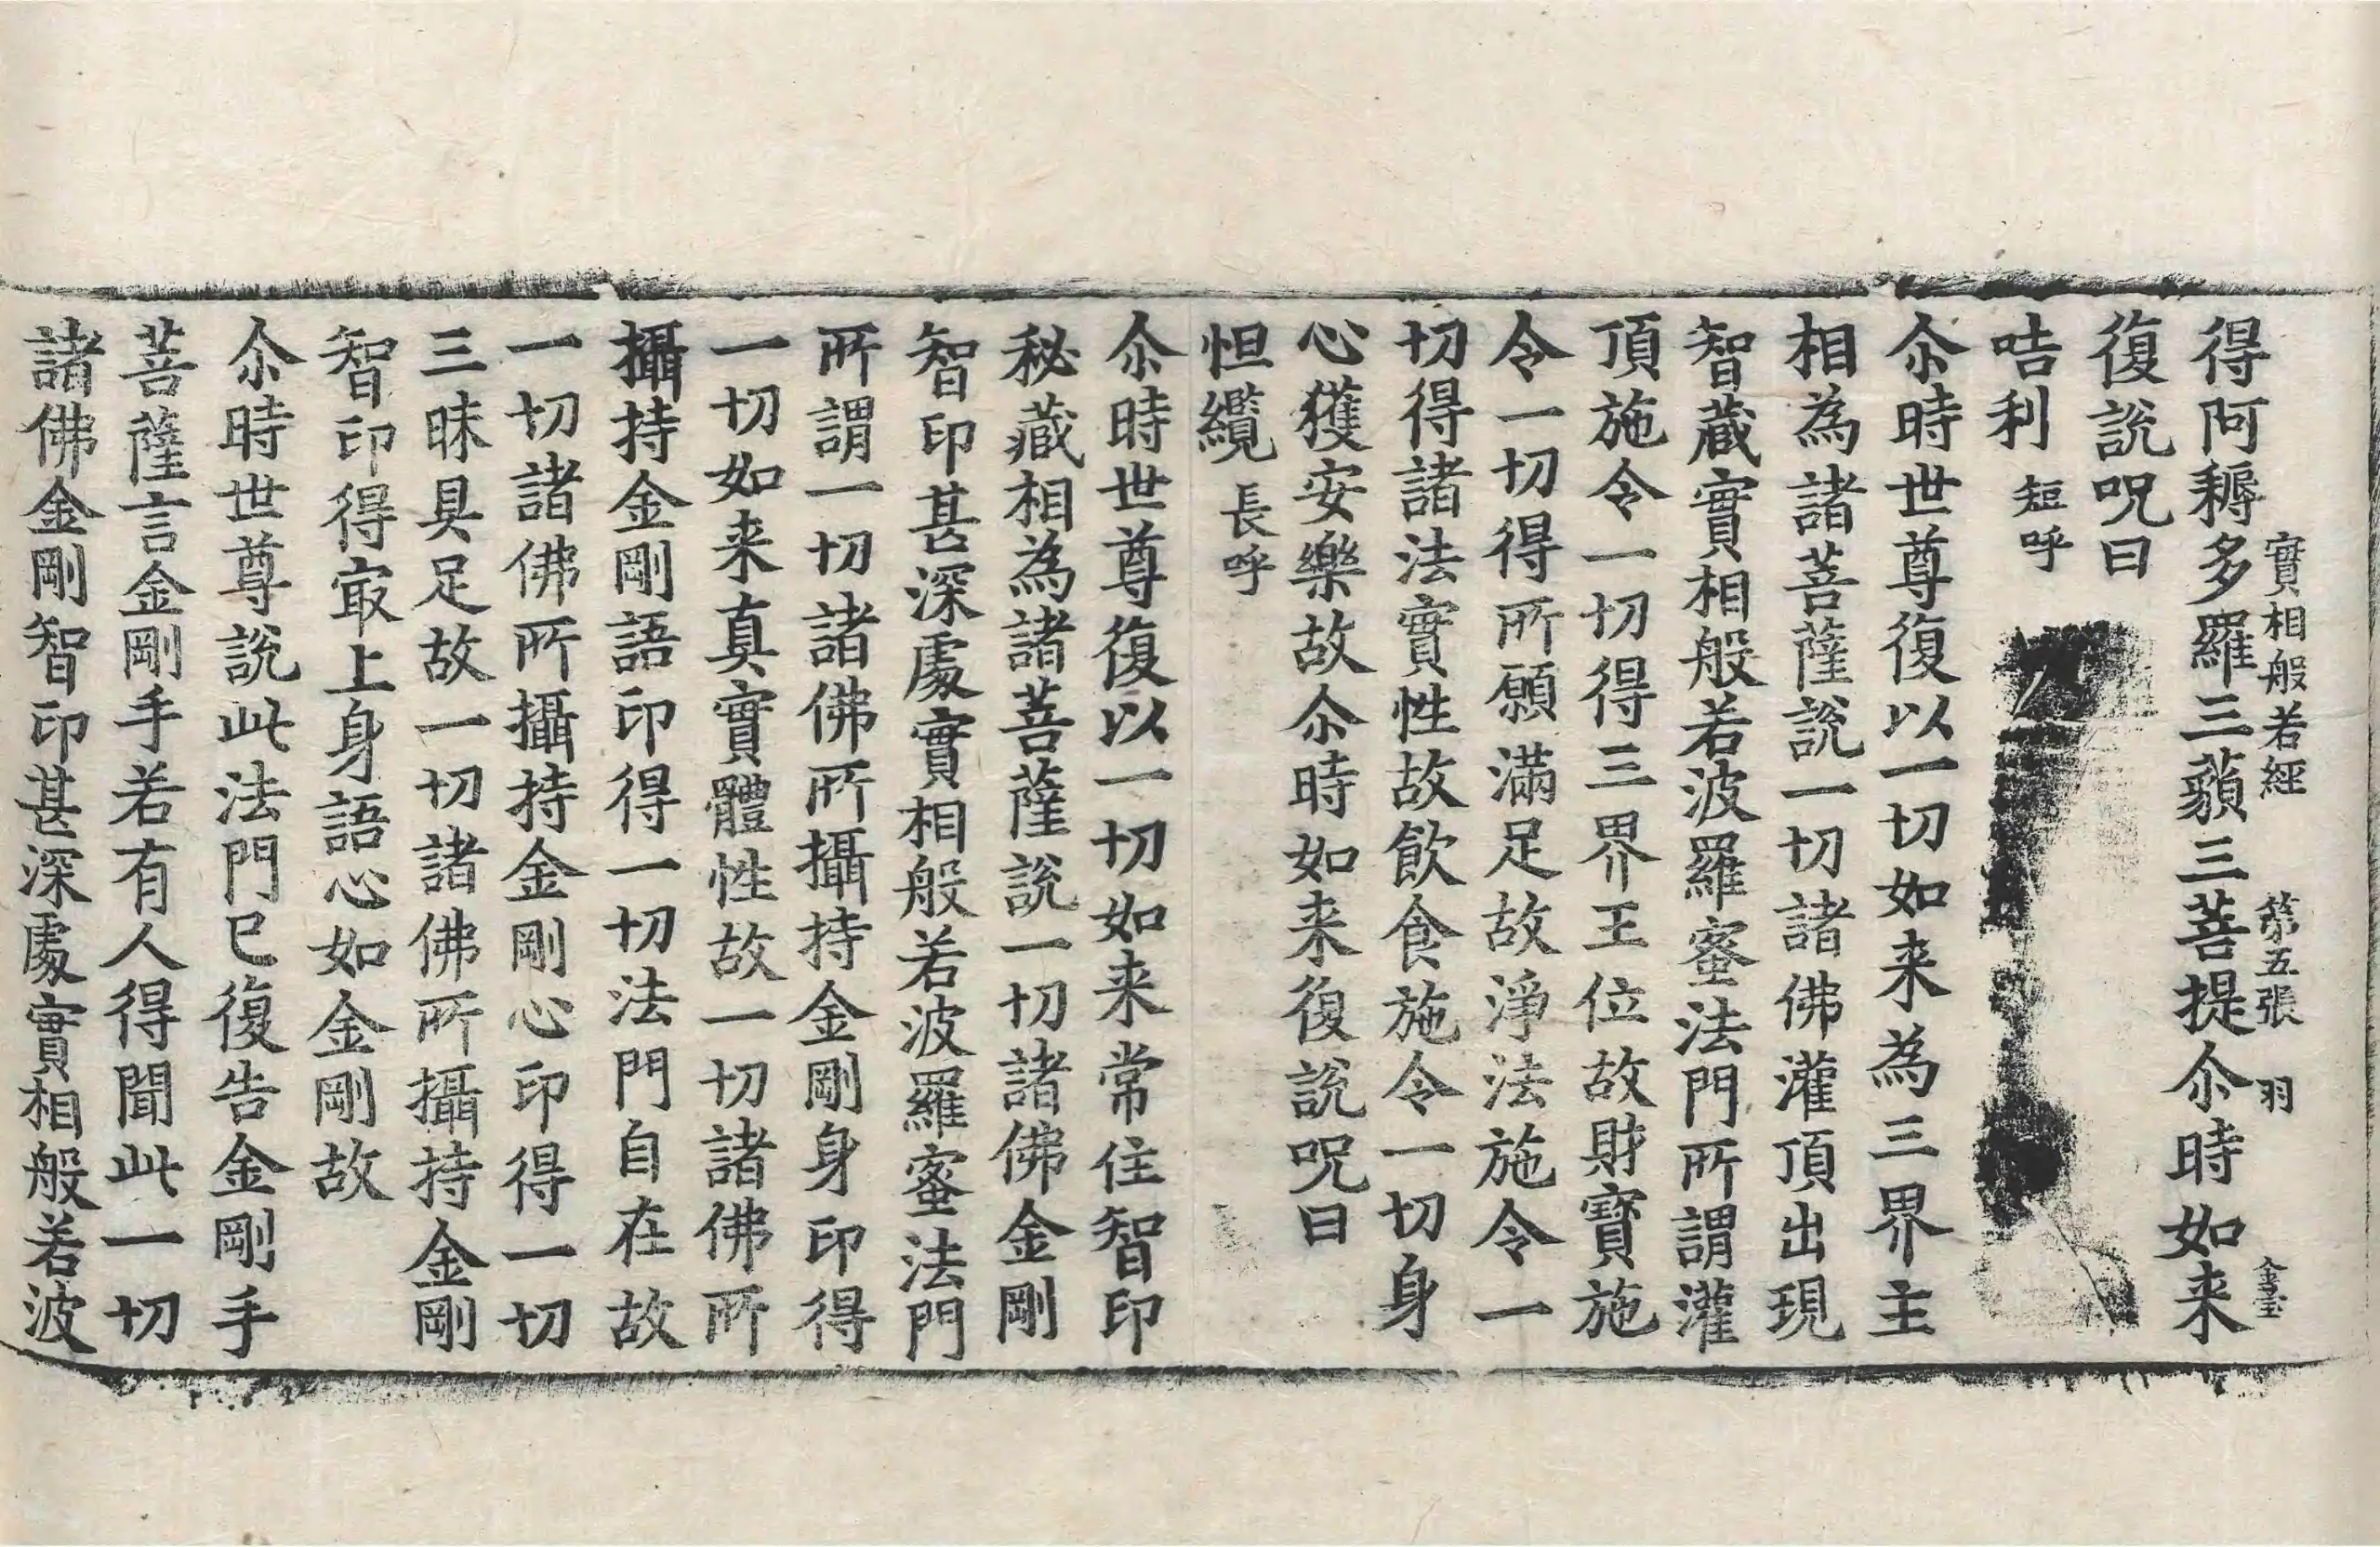 實相般若經 第五張 羽
得阿耨多羅三藐三菩提尒時如来
復說呪曰
咭利 短呼
尒時世尊復以一切如来為三界主
相為諸菩薩說一切諸佛灌頂出現
智藏實相般若波羅蜜法門所謂灌
頂施令一切得三界王位故財寶施
令一切得所願滿足故淨法施令一
切得諸法實性故飲食施令一切身
心獲安樂故尒時如来復說呪曰
怛纜 長呼
尒時世尊復以一切如来常住智印
秘藏相為諸菩薩說一切諸佛金剛
智印甚深處實相般若波羅蜜法門
所謂一切諸佛所攝持金剛身印得
一切如来真實體性故一切諸佛所
攝持金剛語印得一切法門自在故
一切諸佛所攝持金剛心印得一切
三昧具足故一切諸佛所攝持金剛
智印得㝡上身語心如金剛故
尒時世尊說此法門已復告金剛手
菩薩言金剛手若有人得聞此一切
諸佛金剛智印甚深處實相般若波